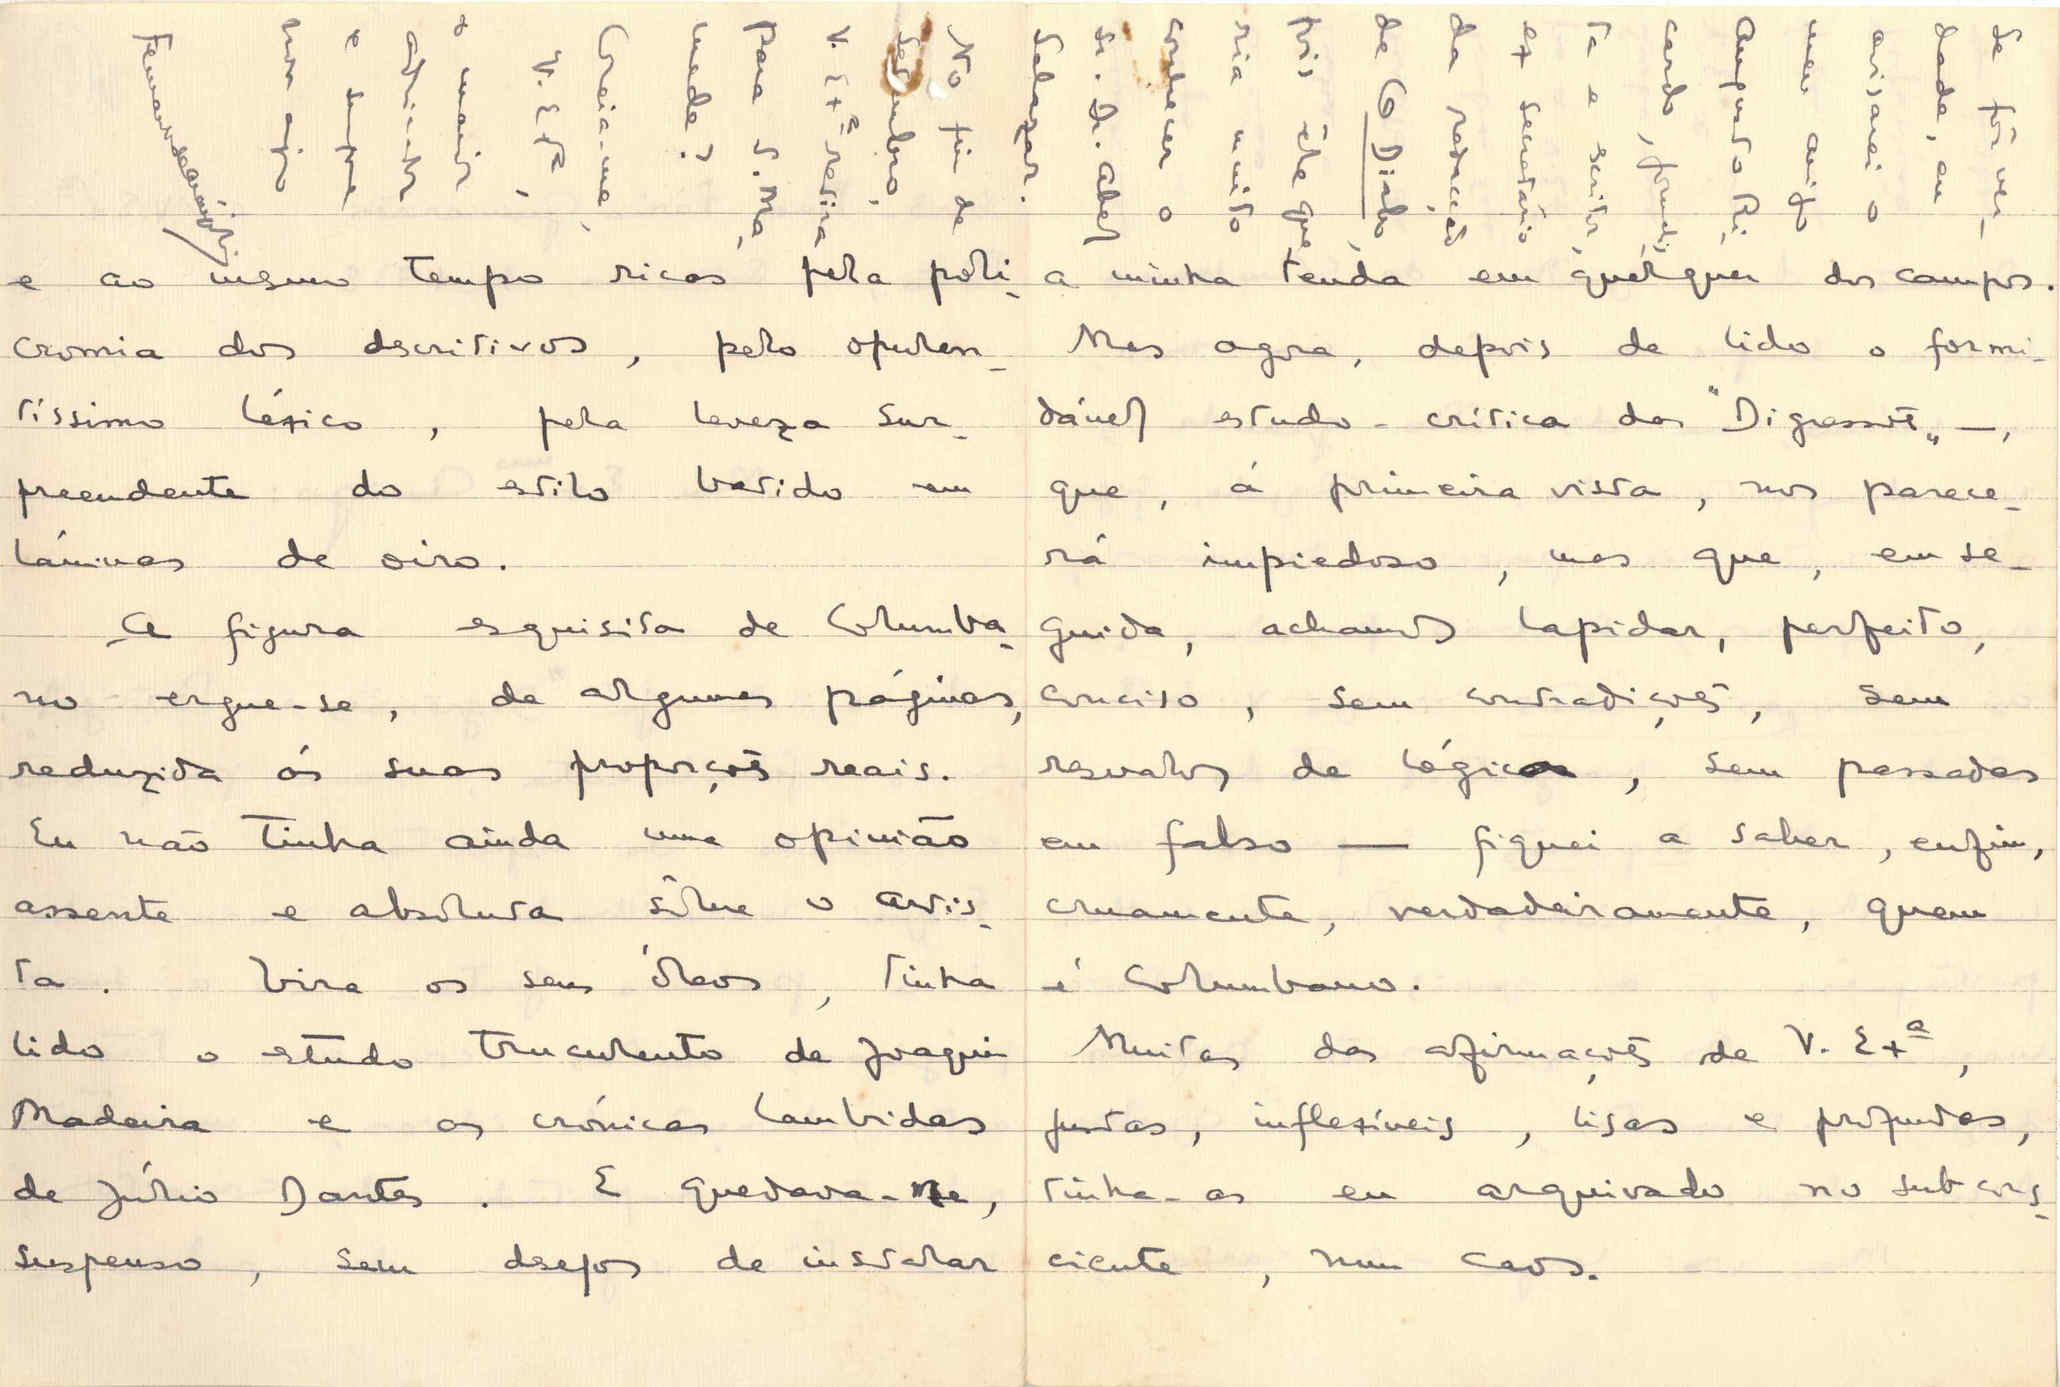 e ao mesmo tempo ricas pela poli-
cromia dos descritivos, pelo opulen-
tíssimo léxico, pela leveza sur-
preendente do estilo batido em
lâminas de oiro.
A figura esquisita de Columba-
no ergue-se, de algumas páginas,
reduzida ás suas proporções reais.
Eu não tinha ainda uma opinião
assente e absoluta sôbre o artis-
ta. Vira os seus óleos, tinha
lido o estudo truculento de Joaquim
Madeira e as crónicas lambidas
de Júlio Dantas. E quedava-me,
suspenso, sem desejos de instalar
a minha tenda em qualquer dos campos.
Mas agora, depois de lido o formi-
dável estudo-crítica das "Digressões" —,
que, á primeira vista, nos parece-
rá impiedoso, mas que, em se-
guida, achamos lapidar, perfeito,
conciso, sem contradições, sem
resvalos de lógica, sem passadas
em falso — fiquei a saber, enfim,
cruamente, verdadeiramente, quem
é Columbano.
Muitas das afirmações de V. Exª,
justas, inflexíveis, lisas e profundas,
tinha-as eu arquivado no subcons-
ciente, num caos.
Se fôr ver-
dade, eu
avisarei o
meu amigo
Augusto Ri-
cardo, jornalis-
ta e escritor,
ex secretário
da redacção
de O Diabo,
pois êle que-
ria muito
conhecer o
Sr. Dr. Abel
Salazar.
No fim de
Setembro,
V. Exª retira
para S. Ma-
mede?
Creia-me,
V. Exª,
o maior
admirador
e sempre
seu amigo
Fernando